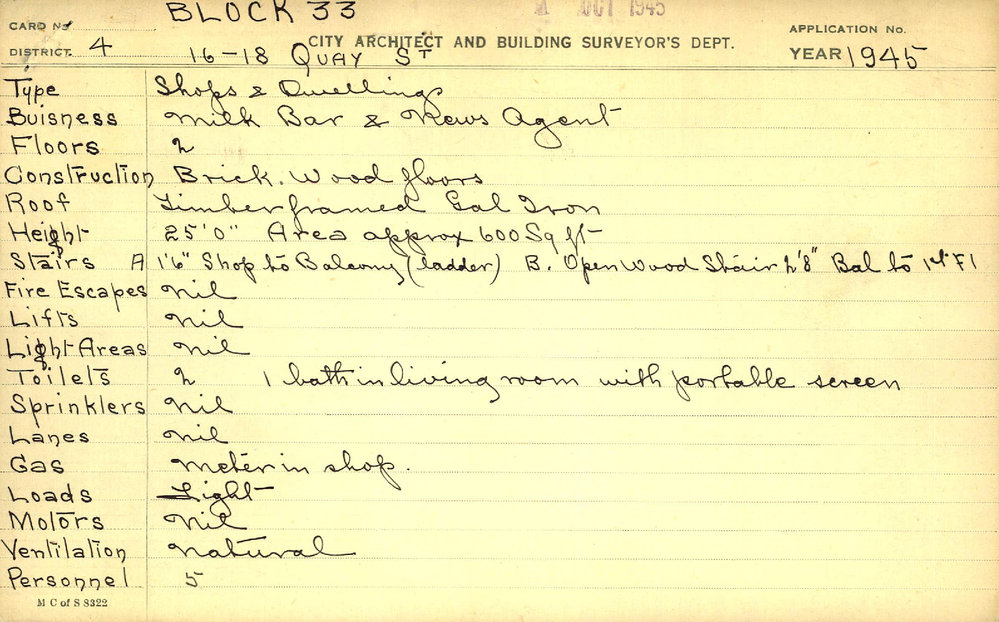 BLOCK 33
OCT 1945
CARD No
CITY ARCHITECT AND BUILDING SURVEYOR'S DEPT.
APPLICATION No.
DISTRICT. 4
16-18 QUAY ST
YEAR 1945
Type Shops & Dwellings
Buisness Milk Bar & News Agent
Floors 2
Construction Brick. Wood floors
Roof Timber framed Gal Iron
Height 25'0" Area approx 600 Sq ft
Stairs A 1'6" Shop to Balcony (ladder) B. Open Wood Stair 2'8" Bal to 1st Fl
Fire Escapes Nil
Lifts Nil
Light Areas Nil
Toilets 2 1 bath in living room with portable screen
Sprinklers Nil
Lanes Nil
Gas Meter in shop.
Loads Light
Motors Nil
Ventilation Natural
Personnel 5
M C of S 8322